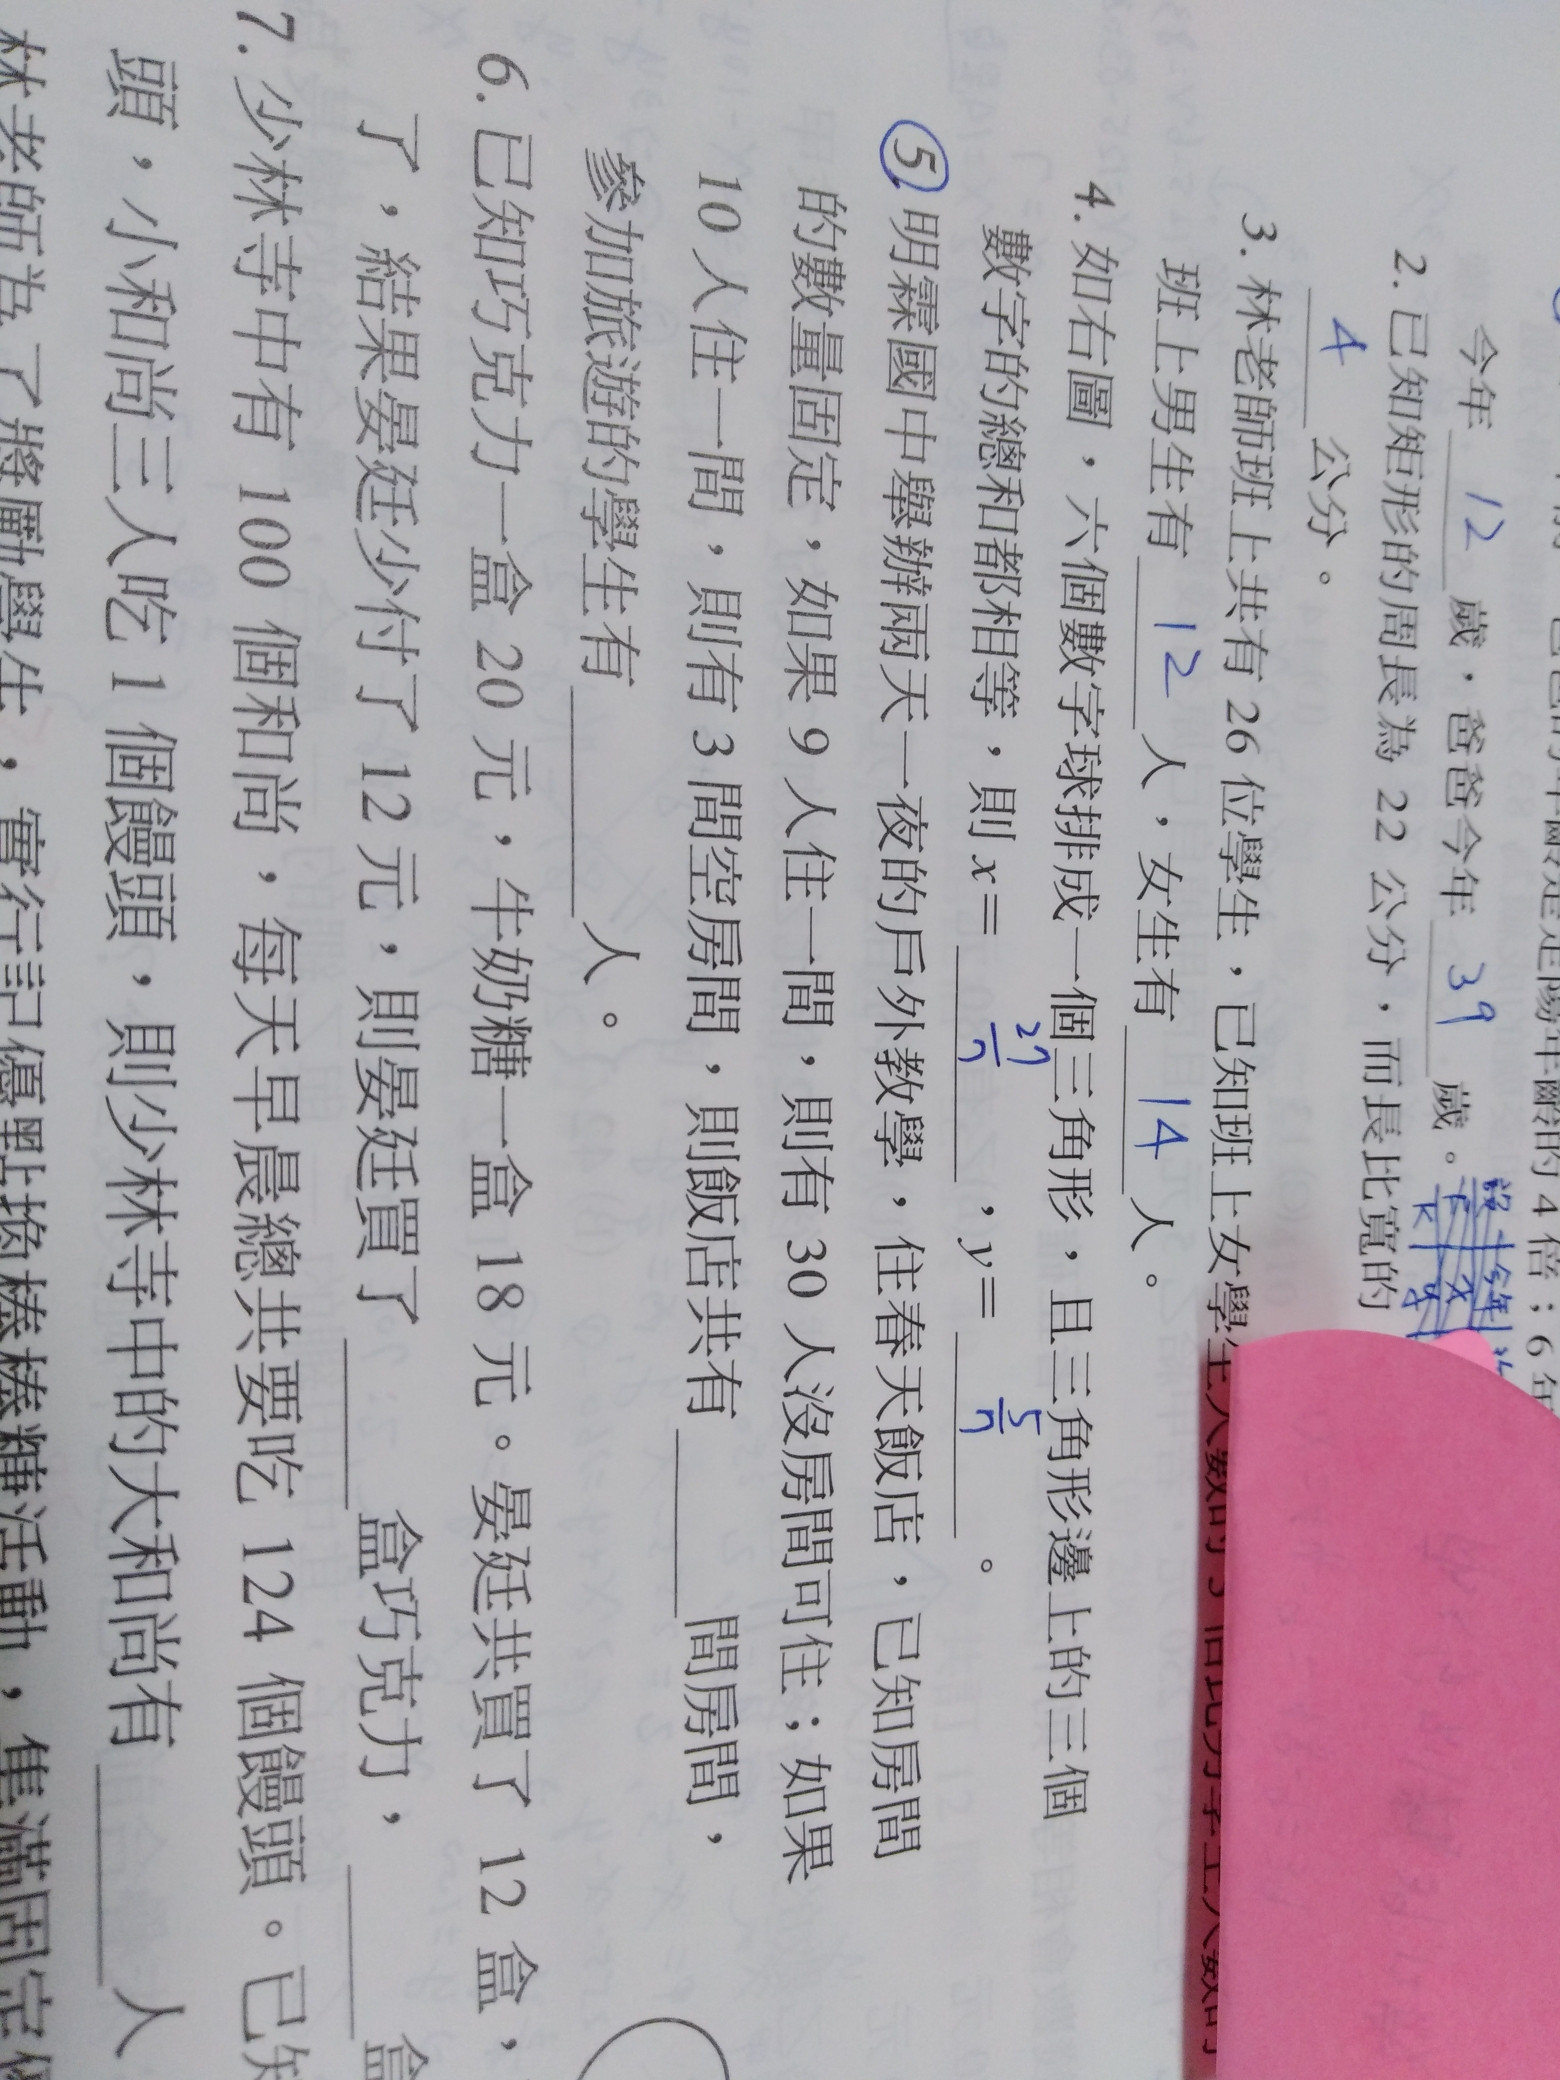 4倍；6年
今年 12 歲，爸爸今年 39 歲。
2. 已知矩形的周長為 22 公分，而長比寬的
4 公分。
3. 林老師班上共有 26 位學生，已知班上女學生人數的
班上男生有 12 人，女生有 14 人。
4. 如右圖，六個數字球排成一個三角形，且三角形邊上的三個
數字的總和都相等，則 x= 27/7 ，y= 5/7 。
5. 明霖國中舉辦兩天一夜的戶外教學，住春天飯店，已知房間
的數量固定，如果 9 人住一間，則有 30 人沒房間可住；如果
10 人住一間，則有 3 間空房間，則飯店共有 間房間，
參加旅遊的學生有 人。
6. 已知巧克力一盒 20 元，牛奶糖一盒 18 元。晏廷共買了 12 盒，
了，結果晏廷少付了 12 元，則晏廷買了 盒巧克力， 盒
7. 少林寺中有 100 個和尚，每天早晨總共要吃 124 個饅頭。已知
頭，小和尚三人吃 1 個饅頭，則少林寺中的大和尚有 人
林老師為了獎勵學生，實行記優點換棒棒糖活動，集滿固定個